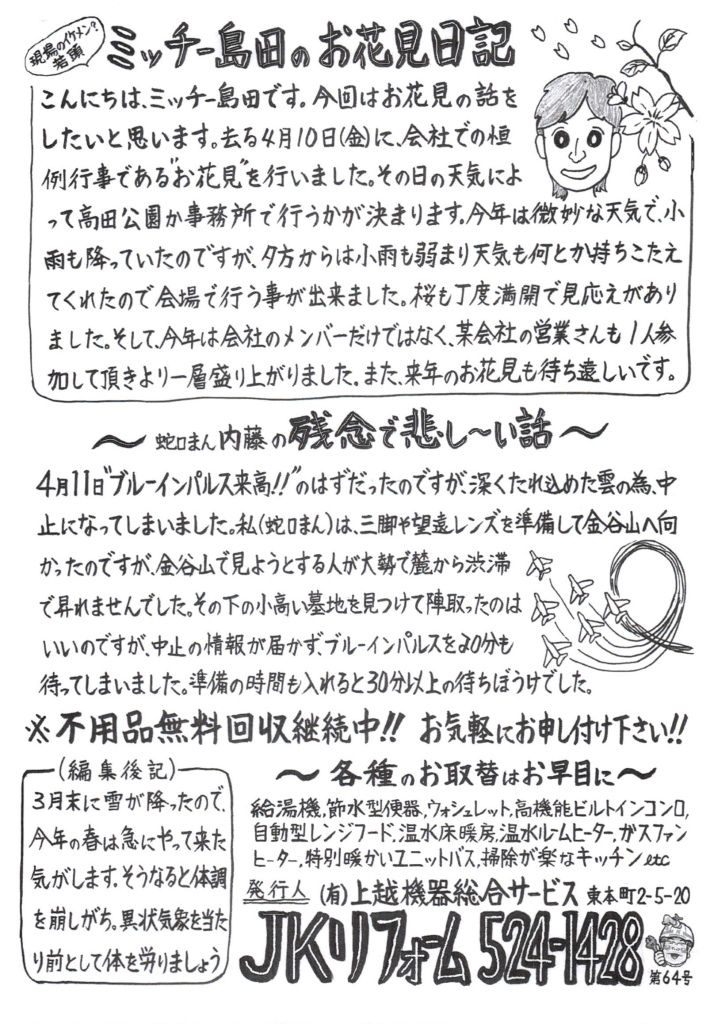 現場のイケメン？
若頭
ミッチー島田のお花見日記
こんにちは、ミッチー島田です。今回はお花見の話を
したいと思います。去る4月10日(金)に、会社での恒
例行事である"お花見"を行いました。その日の天気によ
って高田公園か事務所で行うかが決まります。今年は微妙な天気で、小
雨も降っていたのですが、夕方からは小雨も弱まり天気も何とか持ちこたえ
てくれたので会場で行う事が出来ました。桜も丁度満開で見応えがあり
ました。そして、今年は会社のメンバーだけではなく、某会社の営業さんも1人参
加して頂きより一層盛り上がりました。また、来年のお花見も待ち遠しいです。
〜蛇口まん内藤の残念で悲し〜い話〜
4月11日"ブルーインパルス来高!!"のはずだったのですが、深くたれ込めた雲の為、中
止になってしまいました。私(蛇口まん)は、三脚や望遠レンズを準備して金谷山へ向
かったのですが、金谷山で見ようとする人が大勢で麓から渋滞
で昇れませんでした。その下の小高い墓地を見つけて陣取ったのは
いいのですが、中止の情報が届かず、ブルーインパルスを20分も
待ってしまいました。準備の時間も入れると30分以上の待ちぼうけでした。
※不用品無料回収継続中!! お気軽にお申し付け下さい!!
(編集後記)
3月末に雪が降ったので、
今年の春は急にやって来た
気がします。そうなると体調
を崩しがち。異状気象を当た
り前として体を労りましょう
〜各種のお取替はお早目に〜
給湯機,節水型便器,ウォシュレット,高機能ビルトインコンロ,
自動型レンジフード,温水床暖房,温水ルームヒーター,ガスファン
ヒーター,特別暖かいユニットバス,掃除が楽なキッチンetc
発行人 (有)上越機器総合サービス 東本町2-5-20
JKリフォーム 524-1428
第64号